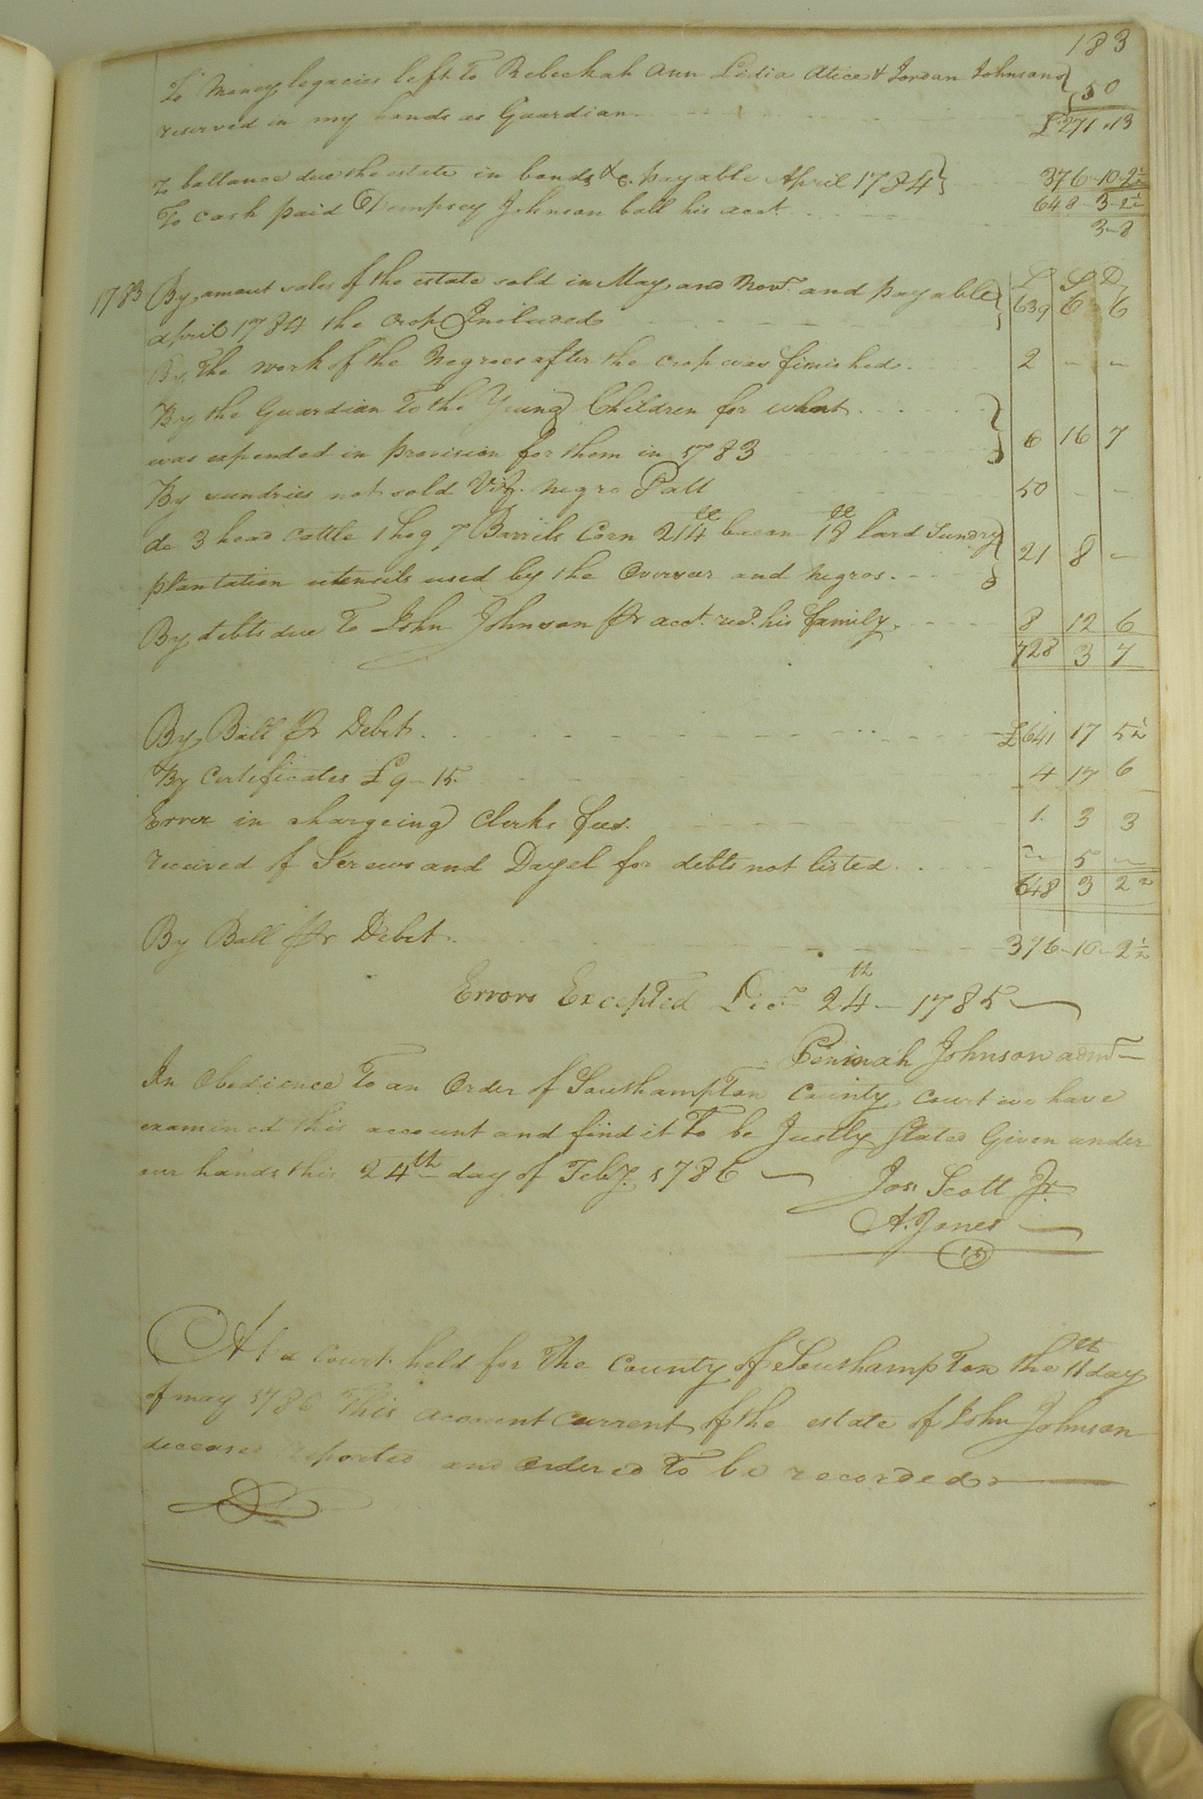 183
To Money legacies left To Rebeckah Ann Lidia Alice & Jordan Johnsons } 50
reserved in my hands as Guardian £271.13
To ballance due the estate in bonds &c. payable April 1784 } 376-10-2½
648-3-2½
To cash paid Dempsey Johnson ball his acct. 3-8
£ S D
1783 By amount sales of the estate sold in May and Novr. and payable } 639 6 6
april 1784 the crop Included
By The work of the Negroes after the crop was finished 2 - -
By the Guardian To the Young Children for what }
was expended in provision for them in 1783 } 6 16 7
By sundries not sold Viz. negro Patt 50 - -
do 3 head cattle 1 hog 7 Barrils Corn 214 bacon 18 lard Sundry }
plantation utensils used by the Overseer and negros. } 21 8 -
By debts due To John Johnson Pr acct. red. his family 8 12 6
728 3 7
By Ball Pr Debit. £641 17 5½
By Certificates £9-15 4 17 6
Error in chargeing Clerks fees. 1. 3 3
received of Screws and Dayel for debts not listed - 5 -
648 3 2½
By Ball Pr Debit. 376-10-2½
Errors Excepted Dec. 24th 1785
Peninah Johnson admr
In Obedience To an Order of Southampton County court we have
examined this account and find it To be Justly Stated Given under
our hands this 24th day of Feby. 1786
Jos Scott Jr.
A. Jones
At a Court held for The County of Southampton the 11th day
of may 1786 This account current of the estate of John Johnson
deceased reported and Ordered To be recorded